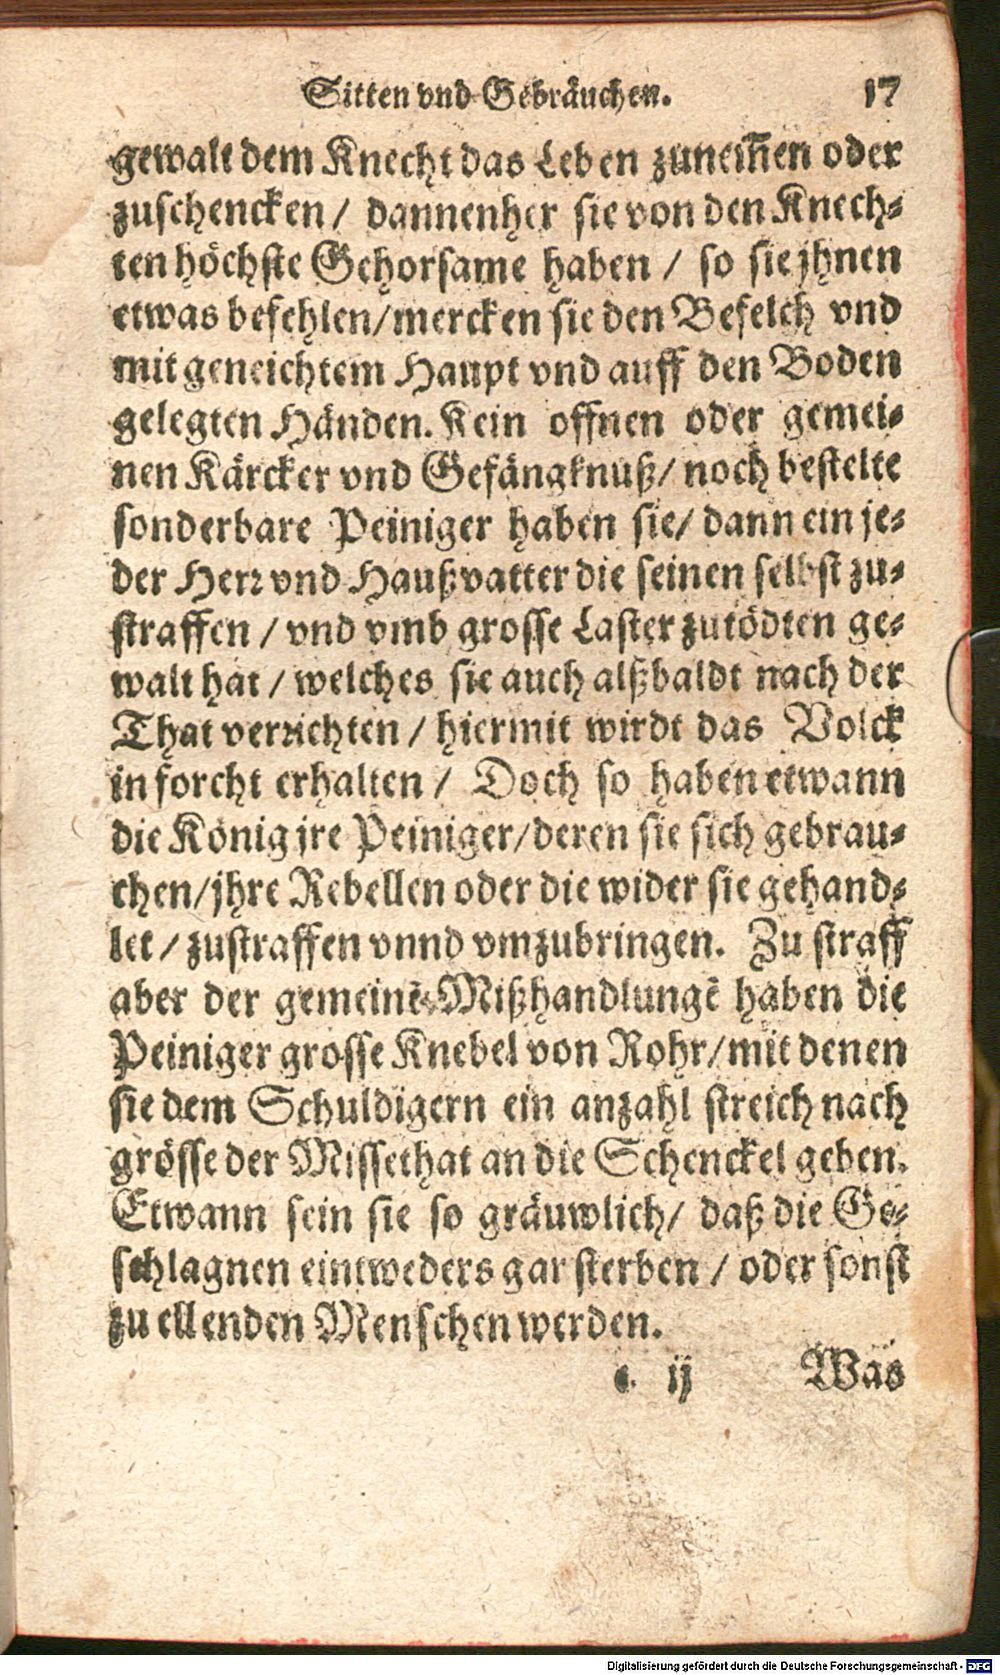 Sitten vnd Gebräuchen. 17
gewalt dem Knecht das Leben zunem̃en oder
zuschencken / dannenher sie von den Knech-
ten höchste Gehorsame haben / so sie jhnen
etwas befehlen/mercken sie den Befelch vnd
mit geneichtem Haupt vnd auff den Boden
gelegten Händen. Kein offnen oder gemei-
nen Kärcker vnd Gefängknuß/ noch bestelte
sonderbare Peiniger haben sie/ dann ein je-
der Herr vnd Haußvatter die seinen selbst zu-
straffen / vnd vmb grosse Laster zutödten ge-
walt hat / welches sie auch alßbaldt nach der
That verrichten / hiermit wirdt das Volck
in forcht erhalten / Doch so haben etwann
die König jre Peiniger/deren sie sich gebrau-
chen/jhre Rebellen oder die wider sie gehand-
let / zustraffen vnnd vmzubringen. Zu straff
aber der gemeinẽ Mißhandlungẽ haben die
Peiniger grosse Knebel von Rohr/mit denen
sie dem Schuldigern ein anzahl streich nach
grösse der Missethat an die Schenckel geben.
Etwann sein sie so gräuwlich/ daß die Ge-
schlagnen eintweders gar sterben / oder sonst
zu ellenden Menschen werden.
c ij Was
Digitalisierung gefördert durch die Deutsche Forschungsgemeinschaft - DFG